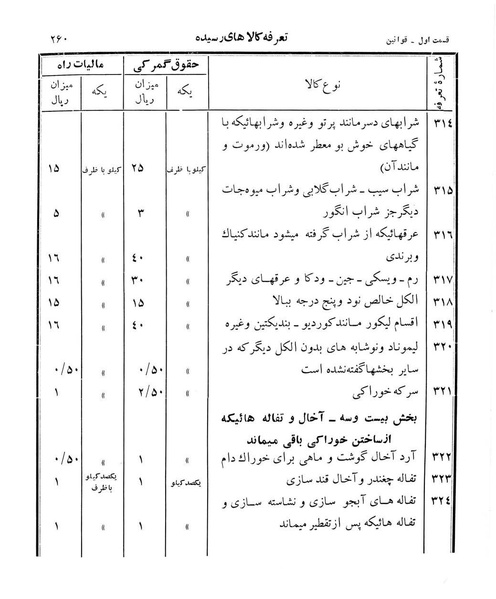 قسمت اول ـ قوانین تعرفه کالاهای رسیده ۲۶۰
شمارهٔ تعرفه نوع کالا حقوق گمرکی مالیات راه
یکه میزان ریال یکه میزان ریال
۳۱۴ شرابهای دسرمانند پرتو وغیره وشرابهائیکه با
گیاههای خوش بو معطر شده‌اند (ورموت و
مانندآن) کیلو با ظرف ۲۵ کیلو با ظرف ۱۵
۳۱۵ شراب سیب ـ شراب گلابی وشراب میوه‌جات
دیگرجز شراب انگور » ۳ » ۵
۳۱۶ عرقهائیکه از شراب گرفته میشود مانند کنیاك
وبرندی » ۴۰ » ۱۶
۳۱۷ رم ـ ویسکی ـ جین ـ ودکا و عرقهای دیگر » ۳۰ » ۱۶
۳۱۸ الکل خالص نود وپنج درجه ببالا » ۱۵ » ۱۵
۳۱۹ اقسام لیکور مانند کوردیو ـ بندیکتین وغیره » ۴۰ » ۱۶
۳۲۰ لیموناد ونوشابه های بدون الکل دیگر که در
سایر بخشها گفته نشده است » ۰/۵۰ » ۰/۵۰
۳۲۱ سرکه خوراکی » ۲/۵۰ » ۱
بخش بیست وسه ـ آخال و تفاله هائیکه
ازساختن خوراکی باقی میماند
۳۲۲ آرد آخال گوشت و ماهی برای خوراك دام » ۱ » ۰/۵۰
۳۲۳ تفاله چغندر و آخال قند سازی یکصدکیلو ۱ یکصدکیلو باظرف ۱
۳۲۴ تفاله های آبجو سازی و نشاسته سازی و
تفاله هائیکه پس از تقطیر میماند » ۱ » ۱